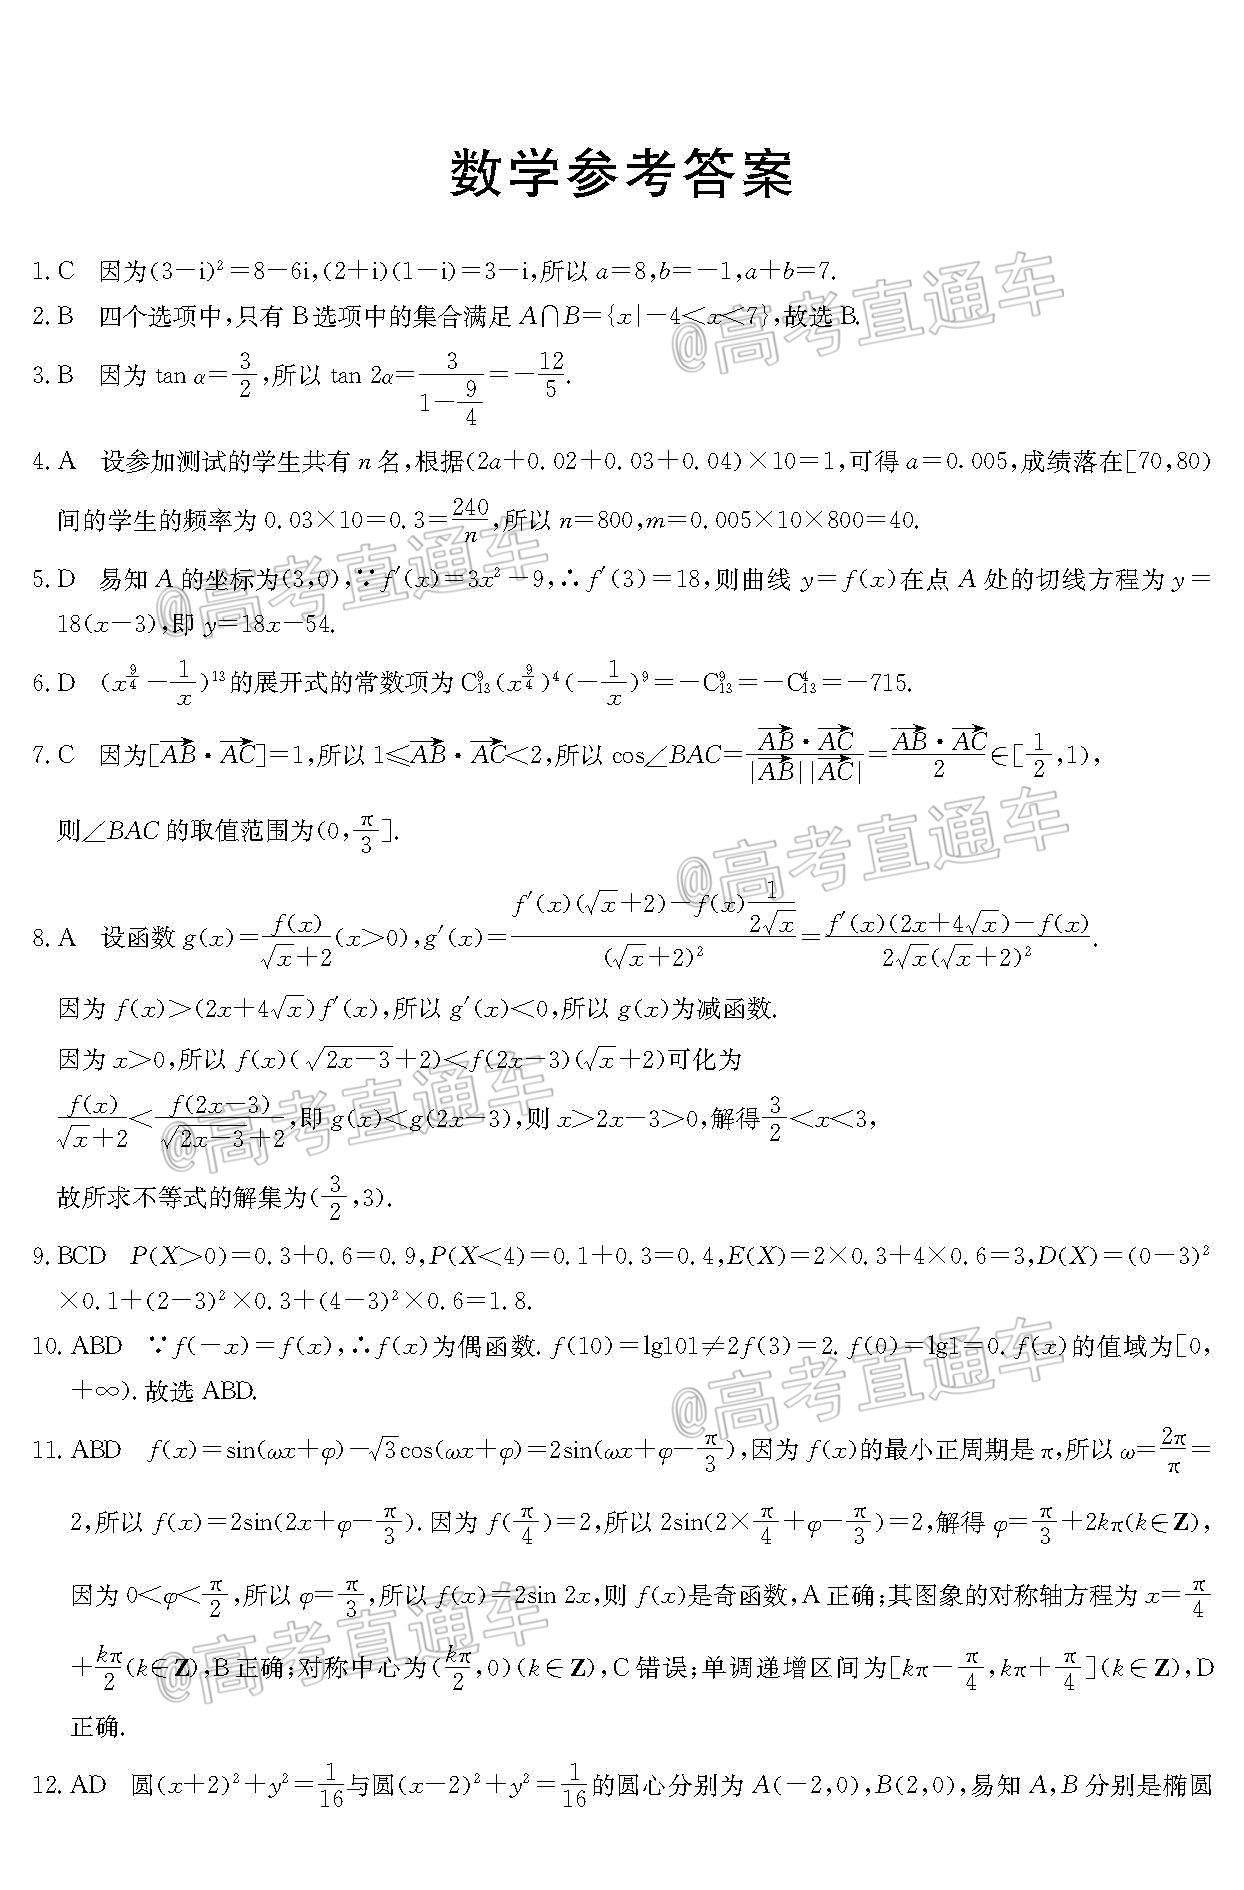 数学参考答案
1. C 因为(3-i)²=8-6i,(2+i)(1-i)=3-i,所以a=8,b=-1,a+b=7.
2. B 四个选项中,只有B选项中的集合满足A∩B={x|-4<x≤7},故选B.
@高考直通车
3. B 因为tan α=3/2,所以tan 2α=3/(1-9/4)=-12/5.
4. A 设参加测试的学生共有n名,根据(2a+0.02+0.03+0.04)×10=1,可得a=0.005,成绩落在[70,80)
间的学生的频率为0.03×10=0.3=240/n,所以n=800,m=0.005×10×800=40.
@高考直通车
5. D 易知A的坐标为(3,0),∵f′(x)=3x²-9,∴f′(3)=18,则曲线y=f(x)在点A处的切线方程为y=
18(x-3),即y=18x-54.
6. D (x^(9/4)-1/x)¹³的展开式的常数项为C₁₃⁹(x^(9/4))⁴(-1/x)⁹=-C₁₃⁹=-C₁₃⁴=-715.
7. C 因为[AB→·AC→]=1,所以1≤AB→·AC→<2,所以cos∠BAC=(AB→·AC→)/(|AB→||AC→|)=(AB→·AC→)/2∈[1/2,1),
则∠BAC的取值范围为(0,π/3].
@高考直通车
8. A 设函数g(x)=f(x)/(√x+2)(x>0),g′(x)=(f′(x)(√x+2)-f(x)1/(2√x))/(√x+2)²=(f′(x)(2x+4√x)-f(x))/(2√x(√x+2)²).
因为f(x)>(2x+4√x)f′(x),所以g′(x)<0,所以g(x)为减函数.
因为x>0,所以f(x)(√(2x-3)+2)<f(2x-3)(√x+2)可化为
f(x)/(√x+2)<f(2x-3)/(√(2x-3)+2),即g(x)<g(2x-3),则x>2x-3>0,解得3/2<x<3,
@高考直通车
故所求不等式的解集为(3/2,3).
9. BCD P(X>0)=0.3+0.6=0.9,P(X<4)=0.1+0.3=0.4,E(X)=2×0.3+4×0.6=3,D(X)=(0-3)²
×0.1+(2-3)²×0.3+(4-3)²×0.6=1.8.
10. ABD ∵f(-x)=f(x),∴f(x)为偶函数. f(10)=lg101≠2f(3)=2. f(0)=lg1=0. f(x)的值域为[0,
+∞). 故选ABD.
@高考直通车
11. ABD f(x)=sin(ωx+φ)-√3cos(ωx+φ)=2sin(ωx+φ-π/3),因为f(x)的最小正周期是π,所以ω=2π/π=
2,所以f(x)=2sin(2x+φ-π/3). 因为f(π/4)=2,所以2sin(2×π/4+φ-π/3)=2,解得φ=π/3+2kπ(k∈Z),
因为0<φ<π/2,所以φ=π/3,所以f(x)=2sin 2x,则f(x)是奇函数,A正确;其图象的对称轴方程为x=π/4
+kπ/2(k∈Z),B正确;对称中心为(kπ/2,0)(k∈Z),C错误;单调递增区间为[kπ-π/4,kπ+π/4](k∈Z),D
@高考直通车
正确.
12. AD 圆(x+2)²+y²=1/16与圆(x-2)²+y²=1/16的圆心分别为A(-2,0),B(2,0),易知A,B分别是椭圆